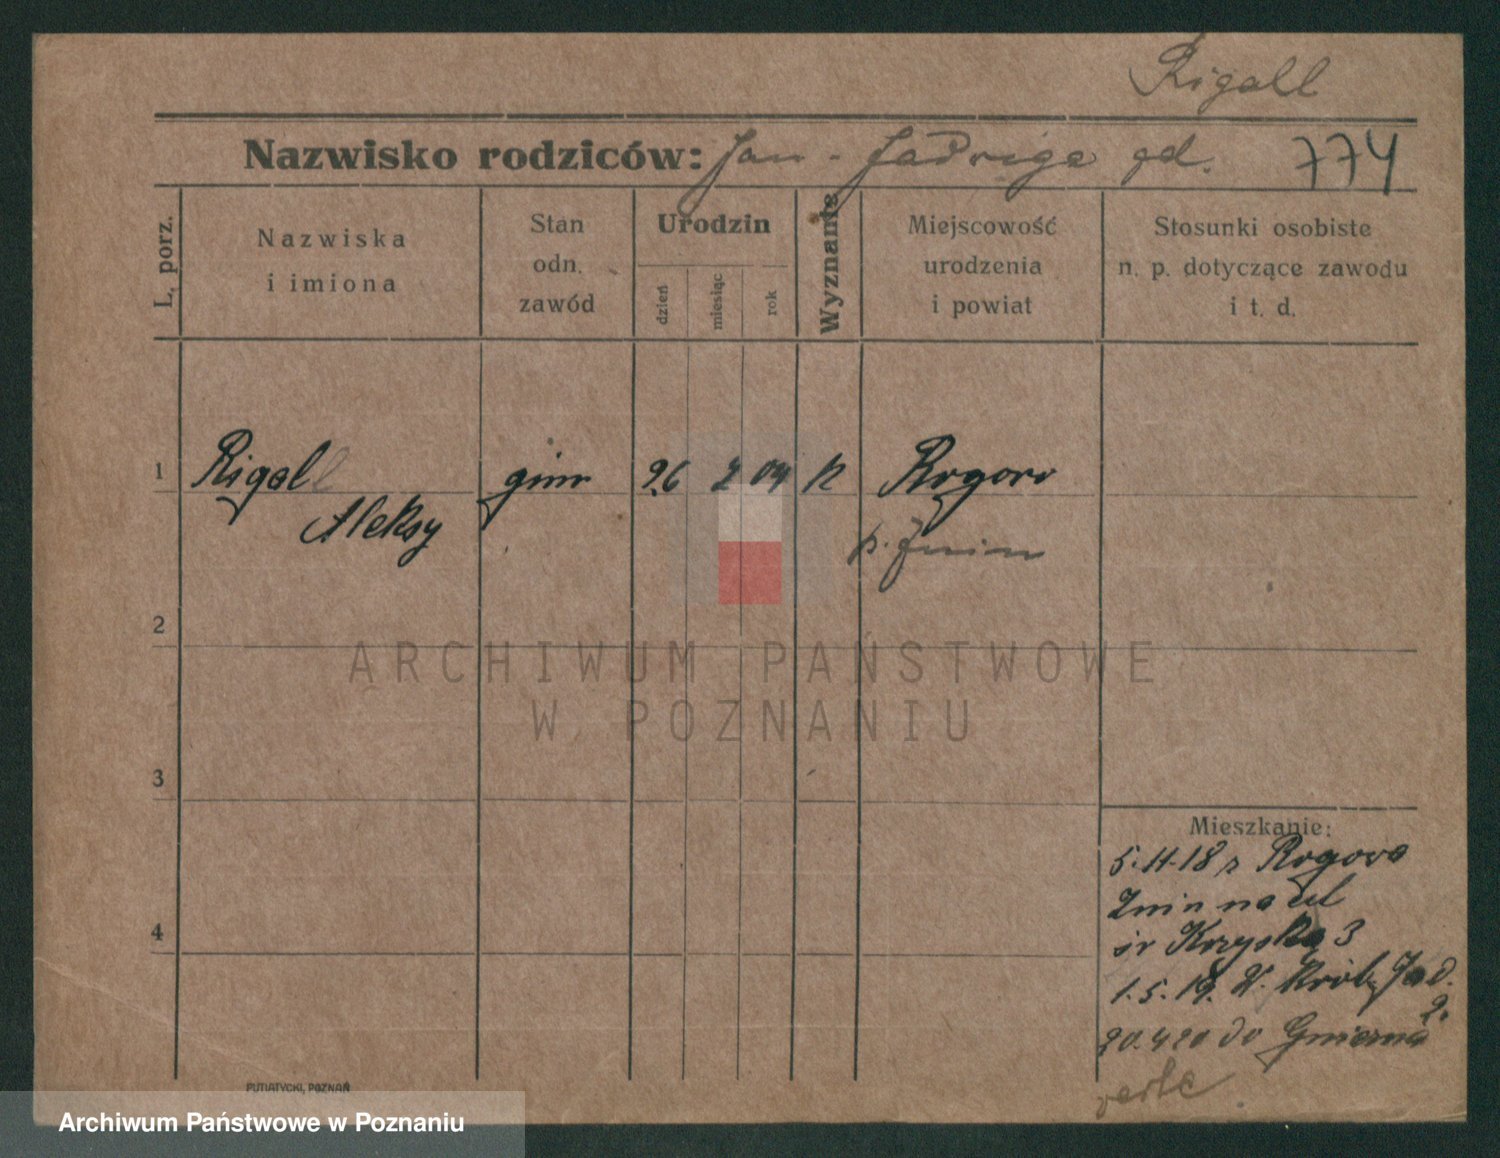 Rigall
Nazwisko rodziców: Jan - Jadwiga gd. 774
L. porz.
Nazwiska
i imiona
Stan
odn.
zawód
Urodzin
dzień
miesiąc
rok
Wyznanie
Miejscowość
urodzenia
i powiat
Stosunki osobiste
n. p. dotyczące zawodu
i t. d.
1 Rigall gimn 26 2 04 k Rogowo
Aleksy
p. Żnin
2
ARCHIWUM PAŃSTWOWE
W POZNANIU
3
4
Mieszkanie:
5.11.18 z Rogowa
Żnin na ul
św Krzyska 3
1.5.19. W. Król. Jad.
2.
20.4 20 do Gniezna
verte
PUTIATYCKI, POZNAŃ
Archiwum Państwowe w Poznaniu